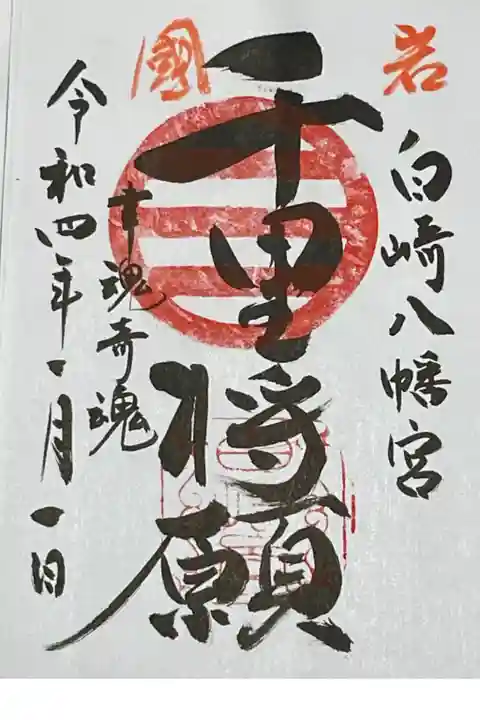 岩國
白崎八幡宮
千里将願
幸魂奇魂
令和四年一月一日